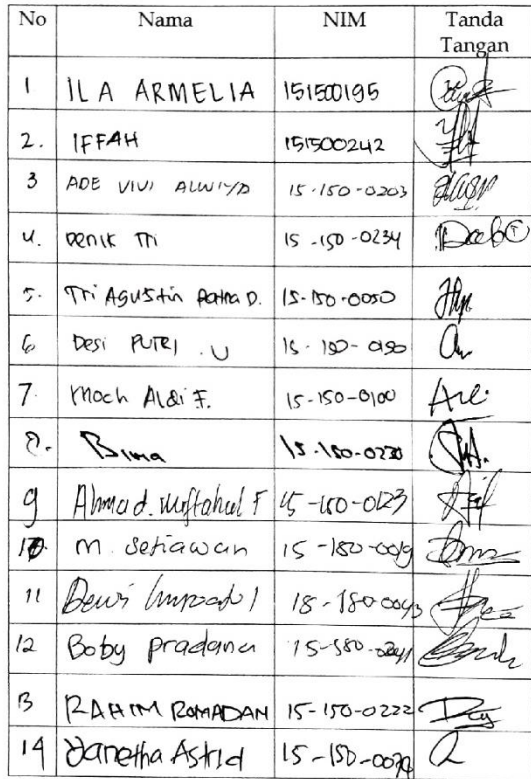 No Nama NIM Tanda Tangan
1 ILA ARMELIA 151500195
2. IFFAH 151500242
3 ADE VIVI ALWIYA 15-150-0203
4. DENIK TRI 15-150-0234
5. Tri Agustin Ratna D. 15-150-0050
6 Desi PUTRI . U 15-150-0190
7. Moch Aldi F. 15-150-0100
8. Bima 15-150-0230
9 Ahmad. Miftahul F 15-150-0123
10 M. Setiawan 15-150-0019
11 Dewi
12 Boby pradana
13 RAHIM ROMADAN 15-150-0222
14 Janetha Astrid